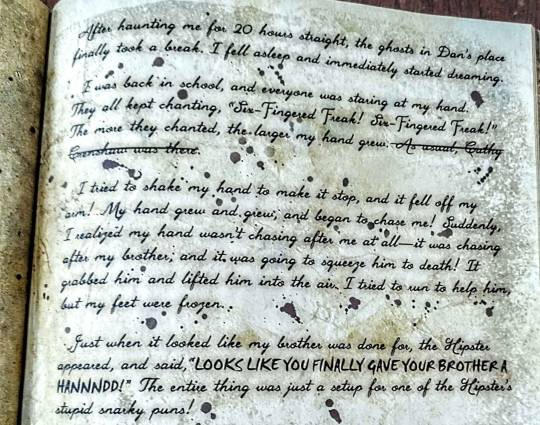 After haunting me for 20 hours straight, the ghosts in Dan's place
finally took a break. I fell asleep and immediately started dreaming.
I was back in school, and everyone was staring at my hand.
They all kept chanting, "Six-Fingered Freak! Six-Fingered Freak!"
The more they chanted, the larger my hand grew. As usual, Cathy
Crenshaw was there.
I tried to shake my hand to make it stop, and it fell off my
arm! My hand grew and grew, and began to chase me! Suddenly,
I realized my hand wasn't chasing after me at all—it was chasing
after my brother, and it was going to squeeze him to death! It
grabbed him and lifted him into the air. I tried to run to help him,
but my feet were frozen.
Just when it looked like my brother was done for, the Hipster
appeared, and said, "LOOKS LIKE YOU FINALLY GAVE YOUR BROTHER A
HANNNDD!" The entire thing was just a setup for one of the Hipster's
stupid snarky puns!